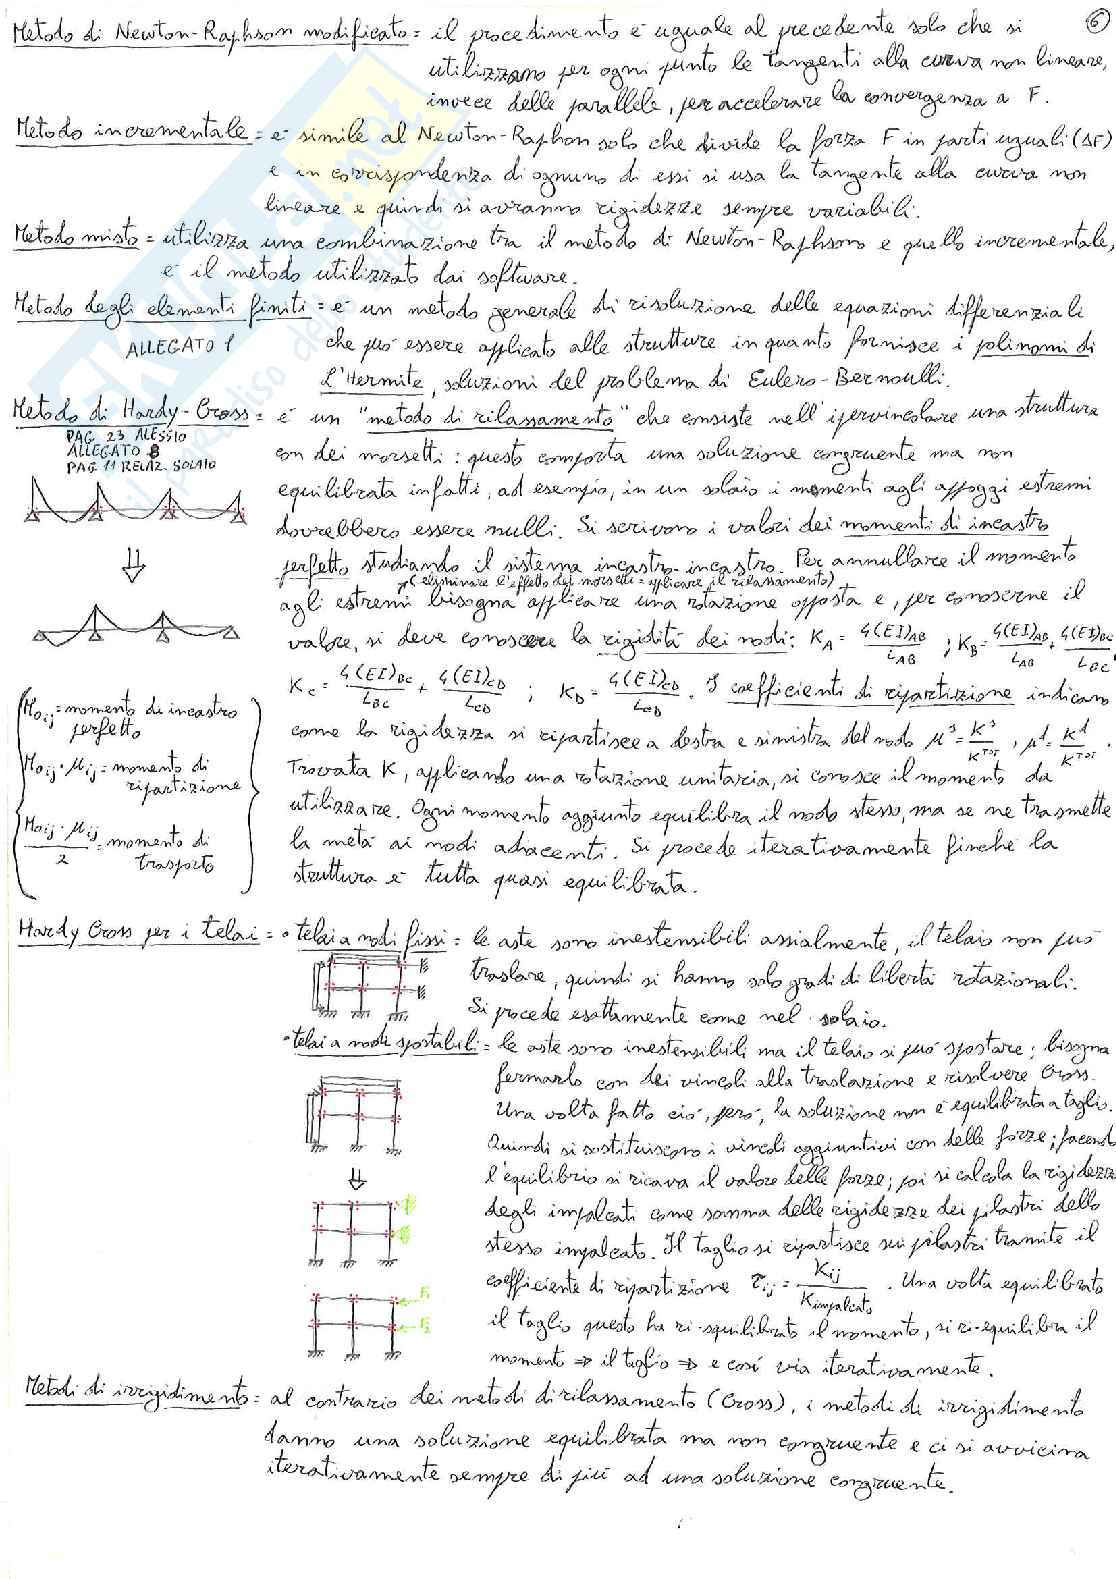 6
Metodo di Newton-Raphson modificato = il procedimento è uguale al precedente solo che si
utilizzano per ogni punto le tangenti alla curva non lineare,
invece delle parallele, per accelerare la convergenza a F.
Metodo incrementale = è simile al Newton-Raphon solo che divide la forza F in parti uguali (ΔF)
e in corrispondenza di ognuno di essi si usa la tangente alla curva non
lineare e quindi si avranno rigidezze sempre variabili.
Metodo misto = utilizza una combinazione tra il metodo di Newton-Raphson e quello incrementale,
è il metodo utilizzato dai software.
Metodo degli elementi finiti = è un metodo generale di risoluzione delle equazioni differenziali
ALLEGATO 1
che può essere applicato alle strutture in quanto fornisce i polinomi di
L'Hermite, soluzioni del problema di Eulero-Bernoulli.
Metodo di Hardy-Cross = è un "metodo di rilassamento" che consiste nell'ipervincolare una struttura
PAG 23 ALESSIO
ALLEGATO B
PAG 11 RELAZ. SOLAIO
con dei morsetti: questo comporta una soluzione congruente ma non
equilibrata infatti, ad esempio, in un solaio i momenti agli appoggi estremi
dovrebbero essere nulli. Si scrivono i valori dei momenti di incastro
perfetto studiando il sistema incastro-incastro. Per annullare il momento
(eliminare l'effetto dei morsetti = applicare il rilassamento)
agli estremi bisogna applicare una rotazione opposta e, per conoscerne il
valore, si deve conoscere la rigidità dei nodi: K_A = 4(EI)_AB / L_AB ; K_B = 4(EI)_AB / L_AB + 4(EI)_BC / L_BC ;
K_C = 4(EI)_BC / L_BC + 4(EI)_CD / L_CD ; K_D = 4(EI)_CD / L_CD . I coefficienti di ripartizione indicano
come la rigidezza si ripartisce a destra e sinistra del nodo μ^s = K^s / K^TOT , μ^d = K^d / K^TOT .
Trovata K, applicando una rotazione unitaria, si conosce il momento da
utilizzare. Ogni momento aggiunto equilibra il nodo stesso, ma se ne trasmette
la metà ai nodi adiacenti. Si procede iterativamente finché la
struttura è tutta quasi equilibrata.
M_0ij = momento di incastro
perfetto
M_0ij · μ_ij = momento di
ripartizione
M_0ij · μ_ij / 2 = momento di
trasporto
Hardy Cross per i telai = • telai a nodi fissi = le aste sono inestensibili assialmente, il telaio non può
traslare, quindi si hanno solo gradi di libertà rotazionali.
Si procede esattamente come nel solaio.
• telai a nodi spostabili = le aste sono inestensibili ma il telaio si può spostare; bisogna
fermarlo con dei vincoli alla traslazione e risolvere Cross.
Una volta fatto ciò, però, la soluzione non è equilibrata a taglio.
Quindi si sostituiscono i vincoli aggiuntivi con delle forze; facendo
l'equilibrio si ricava il valore delle forze; poi si calcola la rigidezza
degli impalcati come somma delle rigidezze dei pilastri dello
stesso impalcato. Il taglio si ripartisce sui pilastri tramite il
coefficiente di ripartizione τ_ij = K_ij / K_impalcato . Una volta equilibrato
F1
F2
il taglio questo ha ri-squilibrato il momento, si ri-equilibra il
momento ⇒ il taglio ⇒ e così via iterativamente.
Metodi di irrigidimento = al contrario dei metodi di rilassamento (Cross), i metodi di irrigidimento
danno una soluzione equilibrata ma non congruente e ci si avvicina
iterativamente sempre di più ad una soluzione congruente.